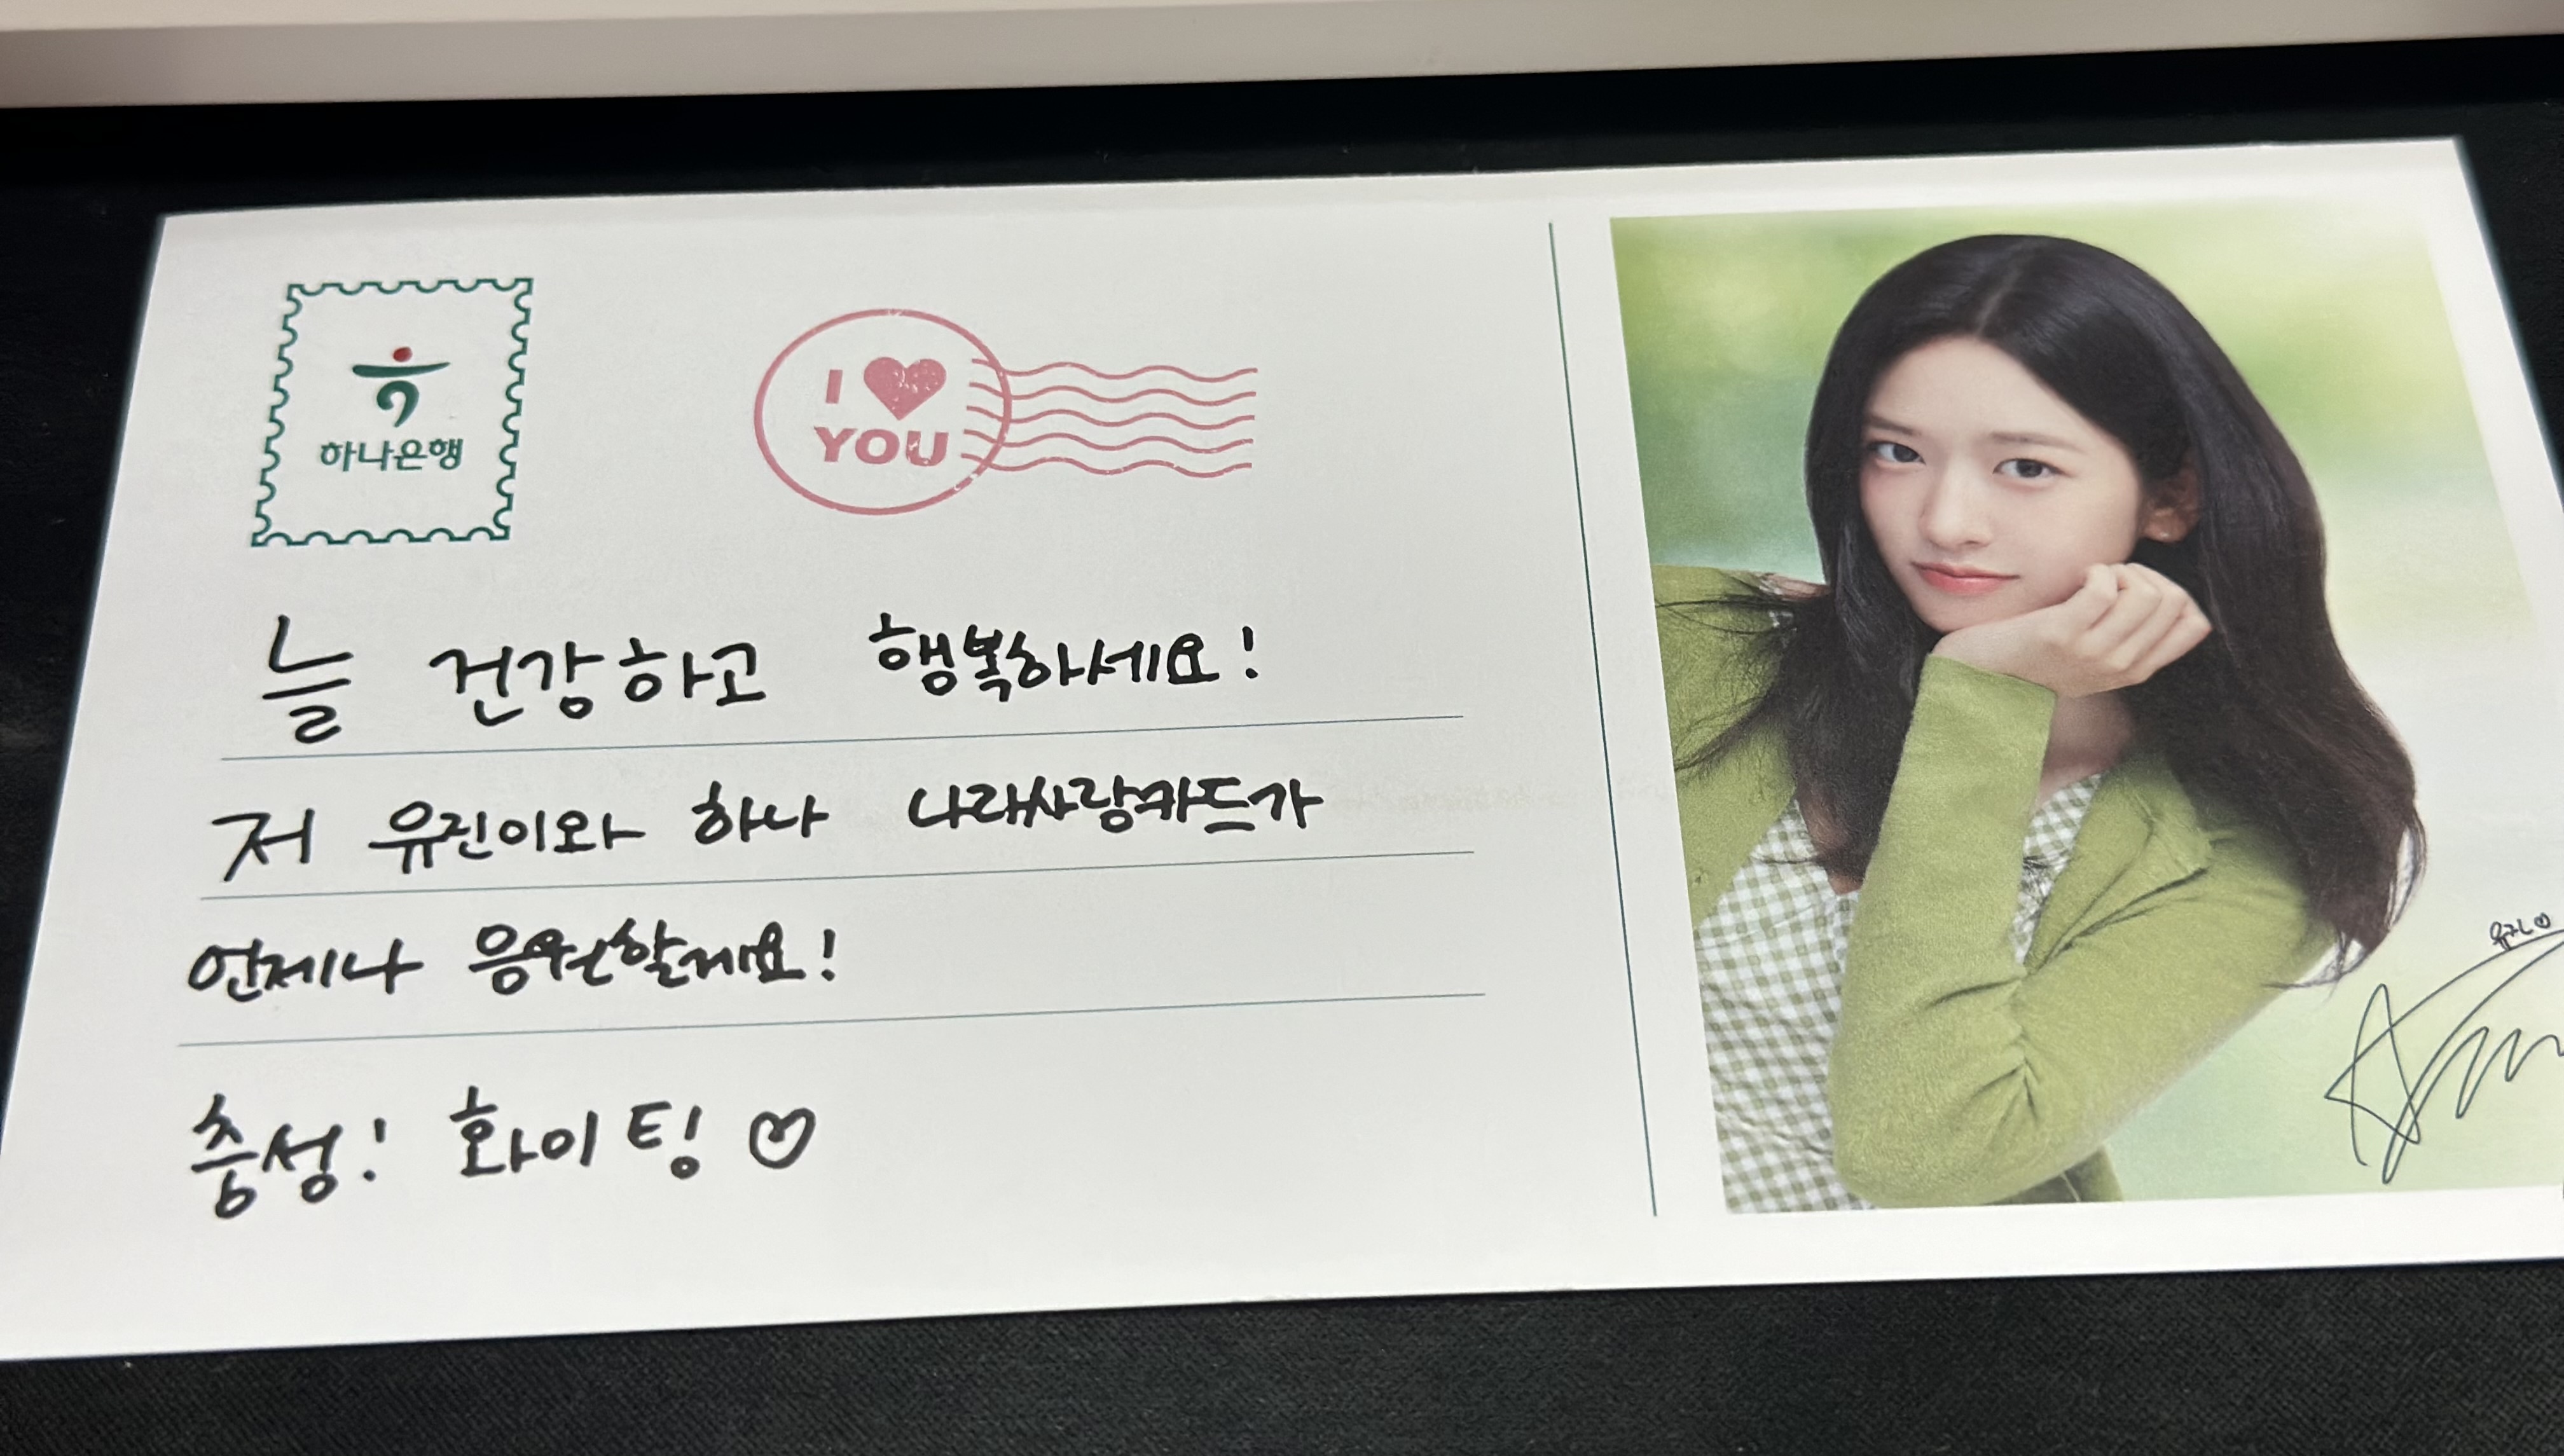 하나은행
I ♥ YOU
늘 건강하고 행복하세요!
저 유진이와 하나 나라사랑카드가
언제나 응원할게요!
충성! 화이팅 ♡
유진♡